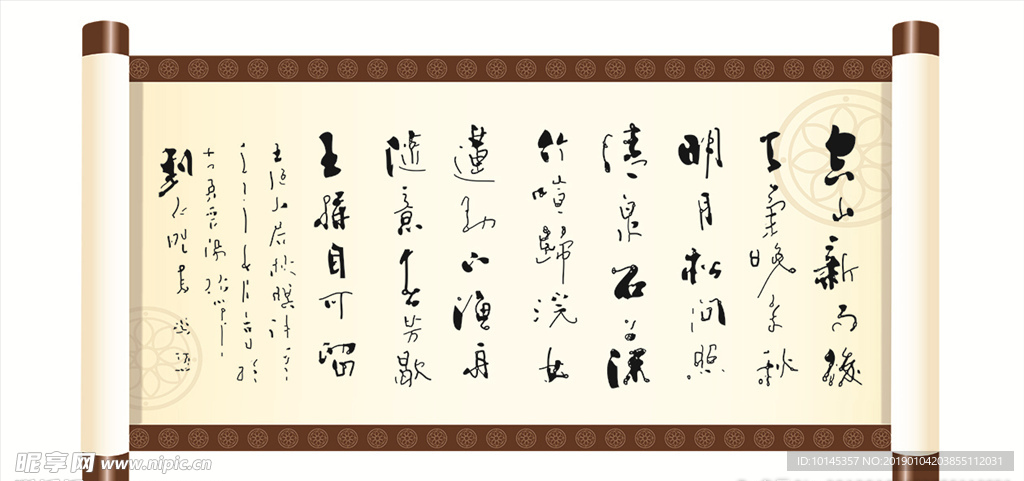 空山新雨後
天氣晚來秋
明月松間照
清泉石上流
竹喧歸浣女
蓮動下漁舟
隨意春芳歇
王孫自可留
王維山居秋暝詩一首
昵享网 www.nipic.cn
ID:10145357 NO:20190104203855112031